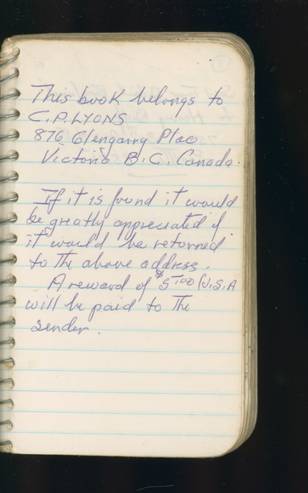 This book belongs to
C.P. LYONS
876 Glengarry Plac
Victoria B.C. Canada.
If it is found it would
be greatly appreciated if
it would be returned
to the above address.
A reward of $5.00 U.S.A
will be paid to the
sender.